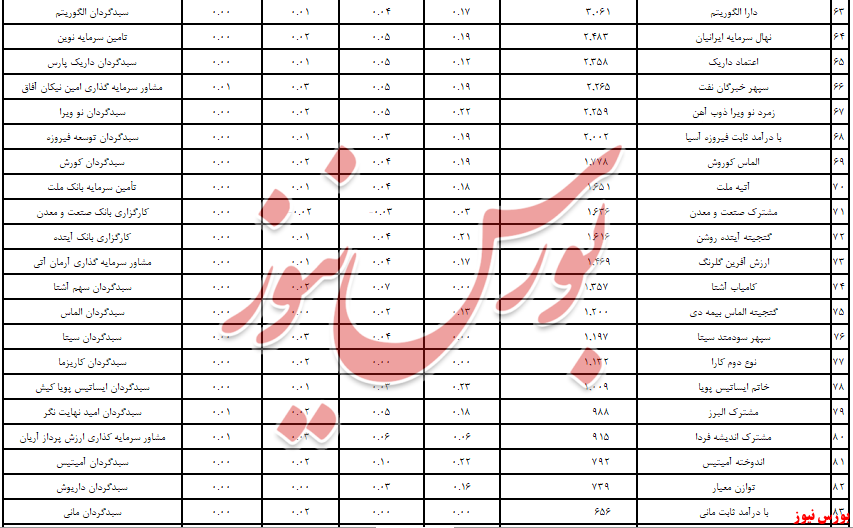 ۶۳ دارا الگوریتم ۳.۰۶۱ ۰.۱۷ ۰.۰۴ ۰.۰۱ ۰.۰۰ سبدگردان الگوریتم
۶۴ نهال سرمایه ایرانیان ۲.۴۸۳ ۰.۱۹ ۰.۰۵ ۰.۰۲ ۰.۰۰ تامین سرمایه نوین
۶۵ اعتماد داریک ۲.۳۵۸ ۰.۱۲ ۰.۰۵ ۰.۰۱ ۰.۰۰ سبدگردان داریک پارس
۶۶ سپهر خبرگان نفت ۲.۲۶۵ ۰.۱۹ ۰.۰۵ ۰.۰۳ ۰.۰۱ مشاور سرمایه گذاری امین نیکان آفاق
۶۷ زمرد نو ویرا ذوب آهن ۲.۲۵۹ ۰.۲۲ ۰.۰۵ ۰.۰۲ ۰.۰۰ سبدگردان نو ویرا
۶۸ با درآمد ثابت فیروزه آسیا ۲.۰۰۲ ۰.۱۹ ۰.۰۳ ۰.۰۱ ۰.۰۰ سبدگردان توسعه فیروزه
۶۹ الماس کوروش ۱.۷۷۸ ۰.۱۹ ۰.۰۴ ۰.۰۲ ۰.۰۰ سبدگردان کورش
۷۰ آتیه ملت ۱.۶۵۱ ۰.۱۸ ۰.۰۴ ۰.۰۱ ۰.۰۰ تأمین سرمایه بانک ملت
۷۱ مشترک صنعت و معدن ۱.۶۳۶ ۰.۰۳ ۰.۰۳- ۰.۰۲ ۰.۰۰ کارگزاری بانک صنعت و معدن
۷۲ گنجینه آینده روشن ۱.۶۱۶ ۰.۲۱ ۰.۰۴ ۰.۰۱ ۰.۰۰ کارگزاری بانک آینده
۷۳ ارزش آفرین گلرنگ ۱.۴۶۹ ۰.۱۷ ۰.۰۴ ۰.۰۱ ۰.۰۰ مشاور سرمایه گذاری آرمان آتی
۷۴ کامیاب آشنا ۱.۳۵۷ ۰.۰۰ ۰.۰۷ ۰.۰۲ ۰.۰۰ سبدگردان سهم آشنا
۷۵ گنجینه الماس بیمه دی ۱.۲۰۰ ۰.۱۳ ۰.۰۲ ۰.۰۰ ۰.۰۰ سبدگردان الماس
۷۶ سپهر سودمند سینا ۱.۱۹۷ ۰.۰۰ ۰.۰۴ ۰.۰۳ ۰.۰۰ سبدگردان سینا
۷۷ نوع دوم کارا ۱.۱۳۲ ۰.۰۰ ۰.۰۰ ۰.۰۲ ۰.۰۰ سبدگردان کاریزما
۷۸ خاتم ایساتیس پویا ۱.۰۰۹ ۰.۲۳ ۰.۰۳ ۰.۰۱ ۰.۰۰ سبدگردان ایساتیس پویا کیش
۷۹ مشترک البرز ۹۸۸ ۰.۱۸ ۰.۰۵ ۰.۰۲ ۰.۰۱ سبدگردان امید نهایت نگر
۸۰ مشترک اندیشه فردا ۹۱۵ ۰.۰۶ ۰.۰۶ ۰.۰۳ ۰.۰۱ مشاور سرمایه گذاری ارزش پرداز آریان
۸۱ اندوخته آمیتیس ۷۹۲ ۰.۲۲ ۰.۱۰ ۰.۰۲ ۰.۰۰ سبدگردان آمیتیس
۸۲ توازن معیار ۷۳۹ ۰.۱۶ ۰.۰۳ ۰.۰۰ ۰.۰۰ سبدگردان داریوش
۸۳ با درآمد ثابت مانی ۶۵۶ ۰.۰۰ ۰.۰۰ ۰.۰۲ ۰.۰۰ سبدگردان مانی
بورس نیوز
بورس نیوز